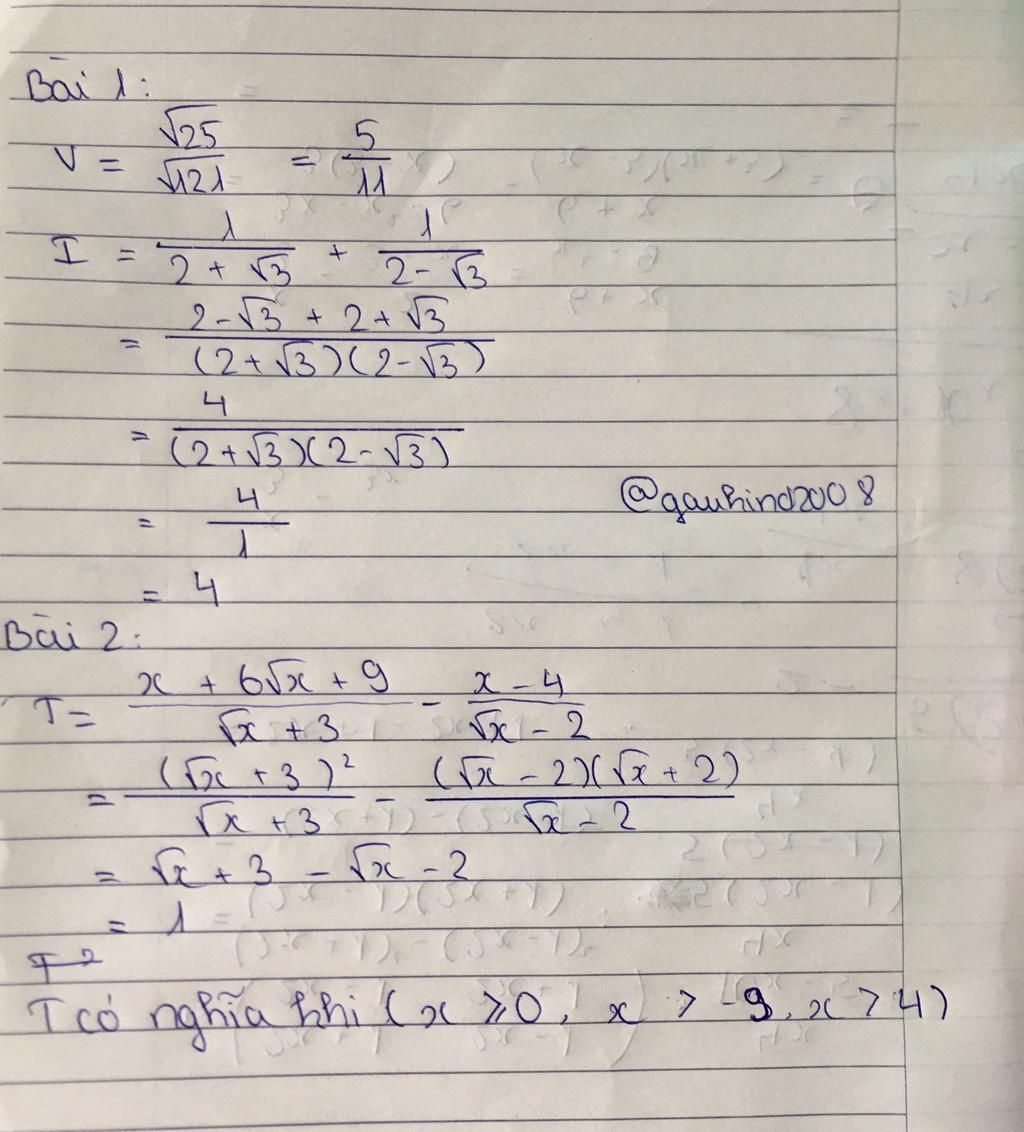 Bài 1:
V = √25/√121 = 5/11
I = 1/(2 + √3) + 1/(2 - √3)
= (2 - √3 + 2 + √3)/((2 + √3)(2 - √3))
= 4/((2 + √3)(2 - √3))
= 4/1
@gauhind2008
= 4
Bài 2:
T = (x + 6√x + 9)/(√x + 3) - (x - 4)/(√x - 2)
= (√x + 3)²/(√x + 3) - ((√x - 2)(√x + 2))/(√x - 2)
= √x + 3 - √x - 2
= 1
T có nghĩa khi (x ⩾ 0, x > -9, x > 4)